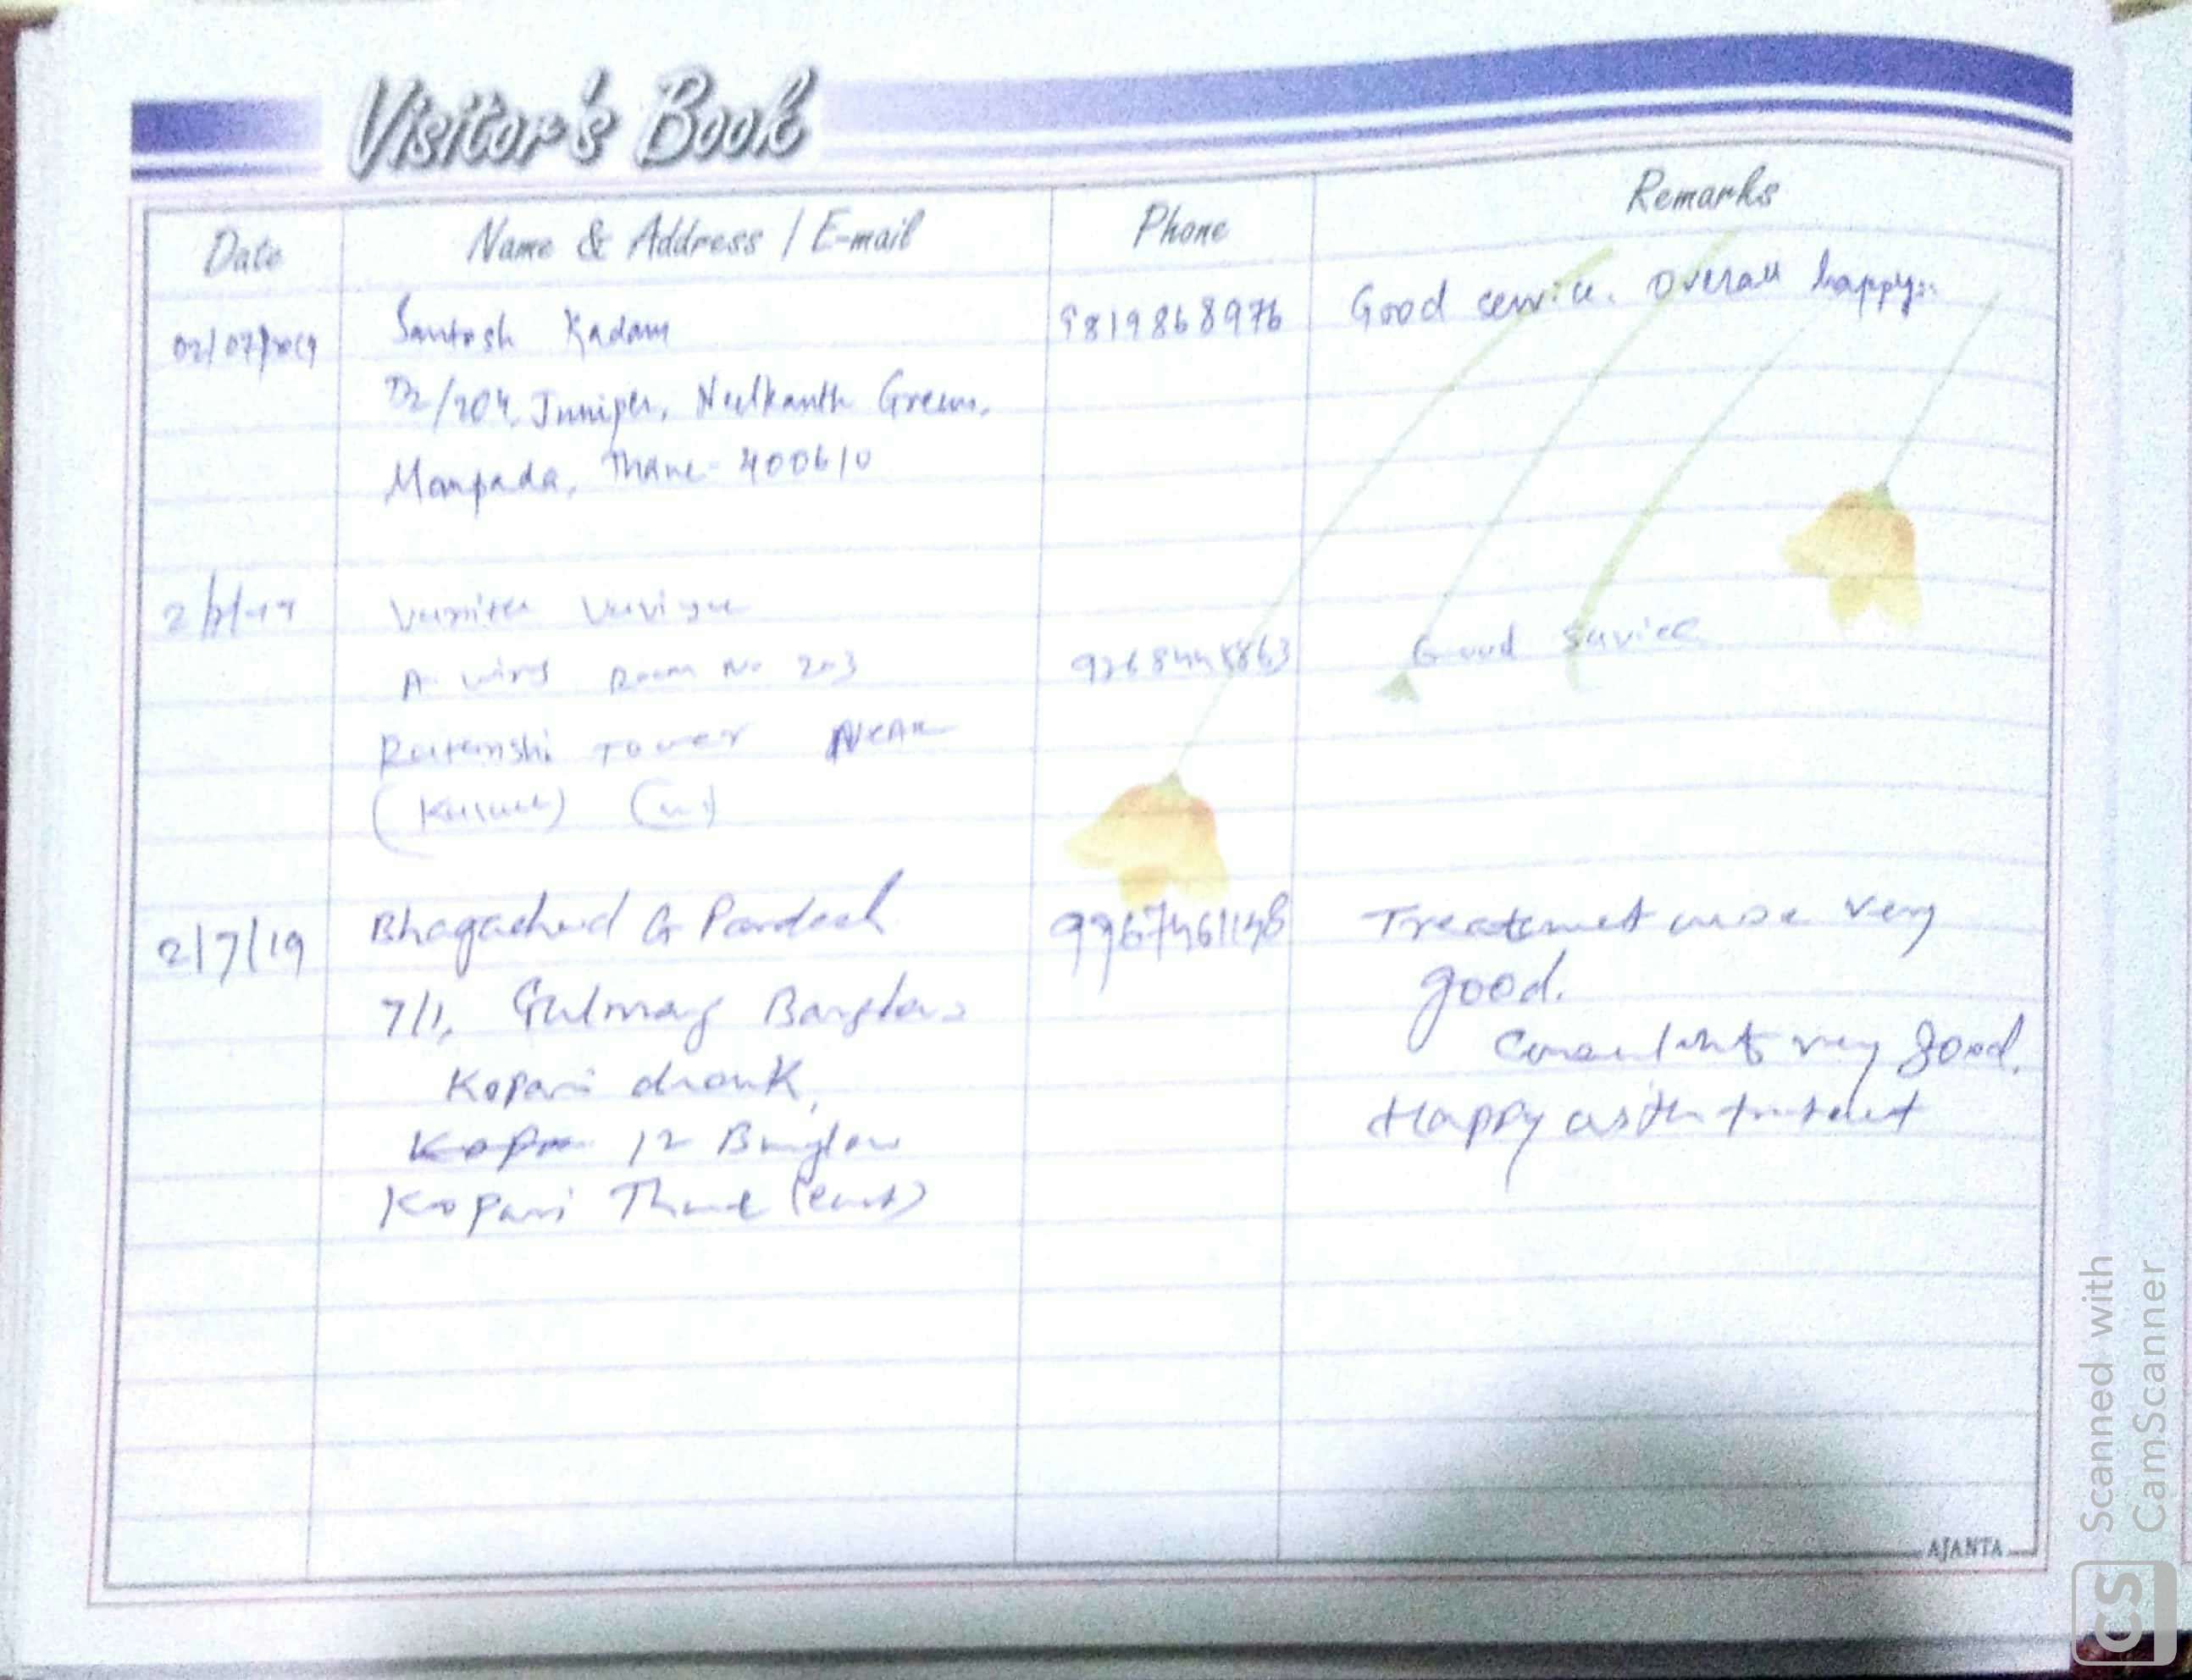 Visitor's Book
Date Name & Address / E-mail Phone Remarks
02/07/2019 Santosh Kadam 9819868976 Good service. Overall happy..
D2/204, Juniper, Neelkanth Greens,
Manpada, Thane - 400610
A- wing Room No 203 Good Service
Ratanshi Tower Near
2/7/19 Bhagachand G Pardesh Treatment wise very
good.
7/1, Gulmarg Banglow
Consultants very good.
Kopari chowk, Happy with
12 Bunglow
Kopari Thane (East)
AJANTA
Scanned with
CamScanner
CS